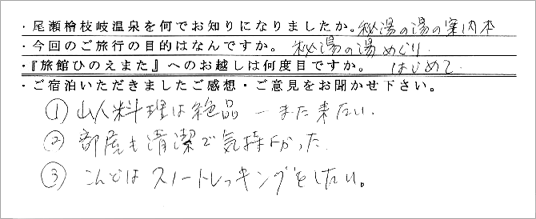 ・尾瀬檜枝岐温泉を何でお知りになりましたか。秘湯の湯の案内本
・今回のご旅行の目的はなんですか。 秘湯の湯めぐり
・『旅館ひのえまた』へのお越しは何度目ですか。 はじめて
・ご宿泊いただきましたご感想・ご意見をお聞かせ下さい。
① 山人料理は絶品 ー また来たい.
② 部屋も清潔で気持よかった
③ こんどは スノートレッキングをしたい。